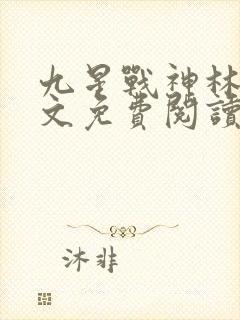 九星戰神林
文免費閱讀
沐非